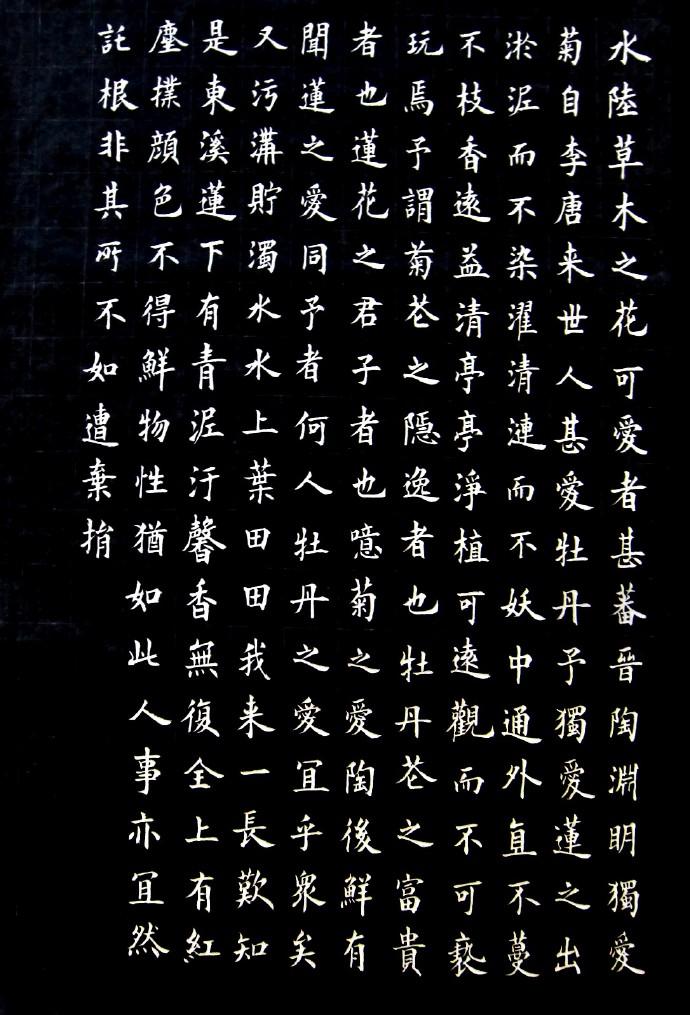 水陸草木之花可愛者甚蕃晉陶淵明獨愛
菊自李唐来世人甚愛牡丹予獨愛蓮之出
淤泥而不染濯清漣而不妖中通外直不蔓
不枝香遠益清亭亭淨植可遠觀而不可褻
玩焉予謂菊花之隱逸者也牡丹花之富貴
者也蓮花之君子者也噫菊之愛陶後鮮有
聞蓮之愛同予者何人牡丹之愛冝乎衆矣
又污溝貯濁水水上葉田田我来一長歎知
是東溪蓮下有青泥汙馨香無復全上有紅
塵撲顔色不得鮮物性猶如此人事亦冝然
託根非其所不如遭棄捐